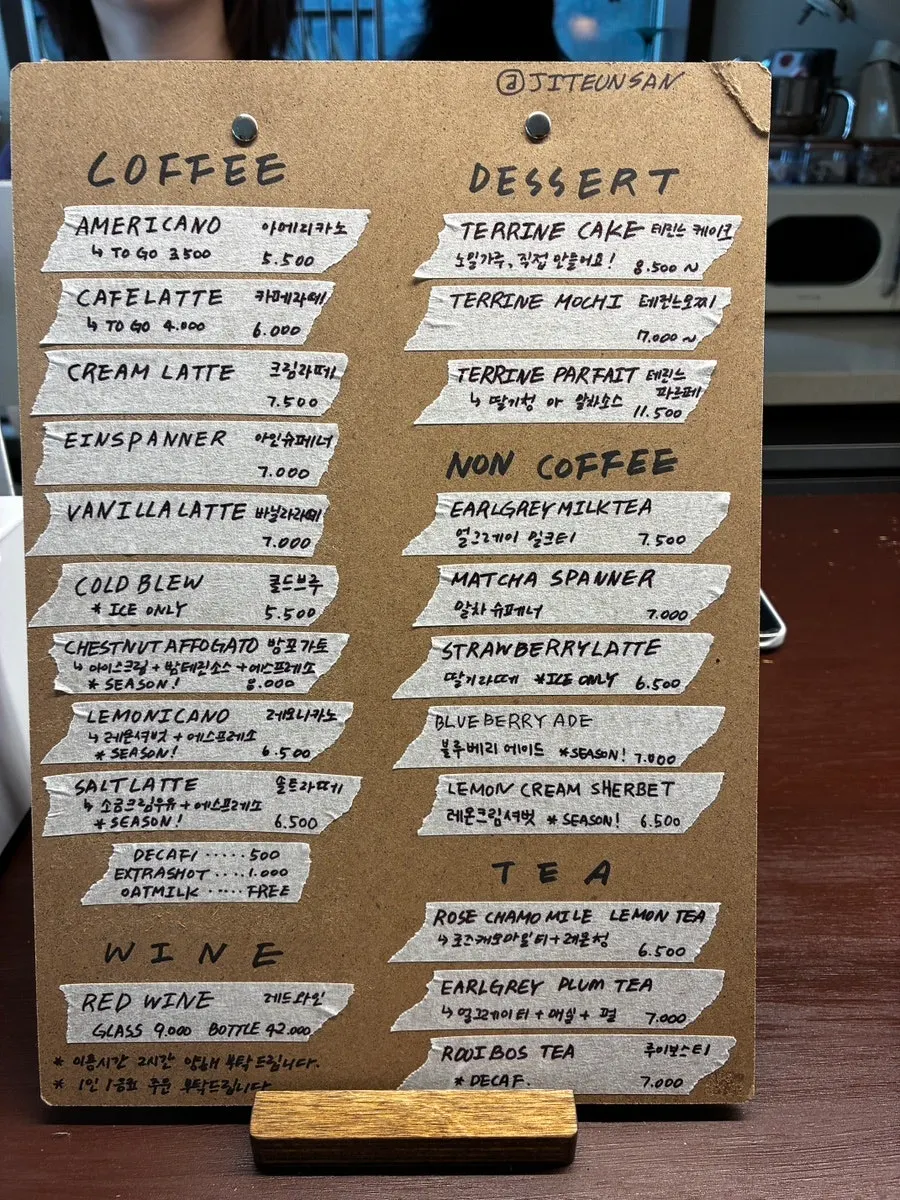 @JITEUNSAN
COFFEE
AMERICANO 아메리카노
↳ TO GO 3.500 5.500
CAFELATTE 카페라떼
↳ TO GO 4.000 6.000
CREAM LATTE 크림라떼
7.500
EINSPANNER 아인슈페너
7.000
VANILLA LATTE 바닐라라떼
7.000
COLD BLEW 콜드브루
* ICE ONLY 5.500
CHESTNUT AFFOGATO 밤포가토
↳ 아이스크림 + 밤테린소스 + 에스프레소
* SEASON! 8.000
LEMONICANO 레모니카노
↳ 레몬셔벗 + 에스프레소
* SEASON! 6.500
SALT LATTE 솔트라떼
↳ 소금크림우유 + 에스프레소
* SEASON! 6.500
DECAFI ····· 500
EXTRASHOT ···· 1.000
OATMILK ···· FREE
WINE
RED WINE 레드와인
GLASS 9.000 BOTTLE 42.000
* 이용시간 2시간 양해 부탁드립니다.
* 1인 1음료 주문 부탁드립니다
DESSERT
TERRINE CAKE 테린느 케이크
노밀가루, 직접 만들어요! 8.500 ~
TERRINE MOCHI 테린느모찌
7.000 ~
TERRINE PARFAIT 테린느
파르페
↳ 딸기청 or 말차소스 11.500
NON COFFEE
EARLGREY MILKTEA
얼그레이 밀크티 7.500
MATCHA SPANNER
말차슈페너 7.000
STRAWBERRY LATTE
딸기라떼 *ICE ONLY 6.500
BLUEBERRY ADE
블루베리 에이드 *SEASON! 7.000
LEMON CREAM SHERBET
레몬크림셔벗 * SEASON! 6.500
TEA
ROSE CHAMOMILE LEMON TEA
↳ 로즈캐모마일티 + 레몬청
6.500
EARLGREY PLUM TEA
↳ 얼그레이티 + 매실 + 펄 7.000
ROOIBOS TEA 루이보스티
* DECAF. 7.000